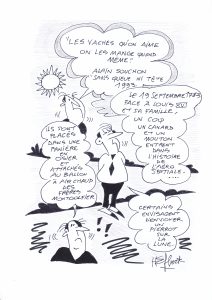 "LES VACHES QU'ON AIME
ON LES MANGE QUAND
MÊME"
ALAIN SOUCHON
SANS QUEUE NI TÊTE
1993
LE 19 SEPTEMBRE 1783
FACE À LOUIS XVI
ET SA FAMILLE,
UN COQ
UN CANARD
ET UN
MOUTON
ENTRENT
DANS
L'HISTOIRE
DE
L'AÉRO
SPATIALE.
ILS SONT
PLACÉS
DANS UNE
PANIÈRE
EN
OSIER
ET
ATTACHÉS
AU BALLON
À AIR CHAUD
DES
FRÈRES
MONTGOLFIER
CERTAINS
ENVISAGENT
D'ENVOYER
UN
PIERROT
SUR LA
LUNE